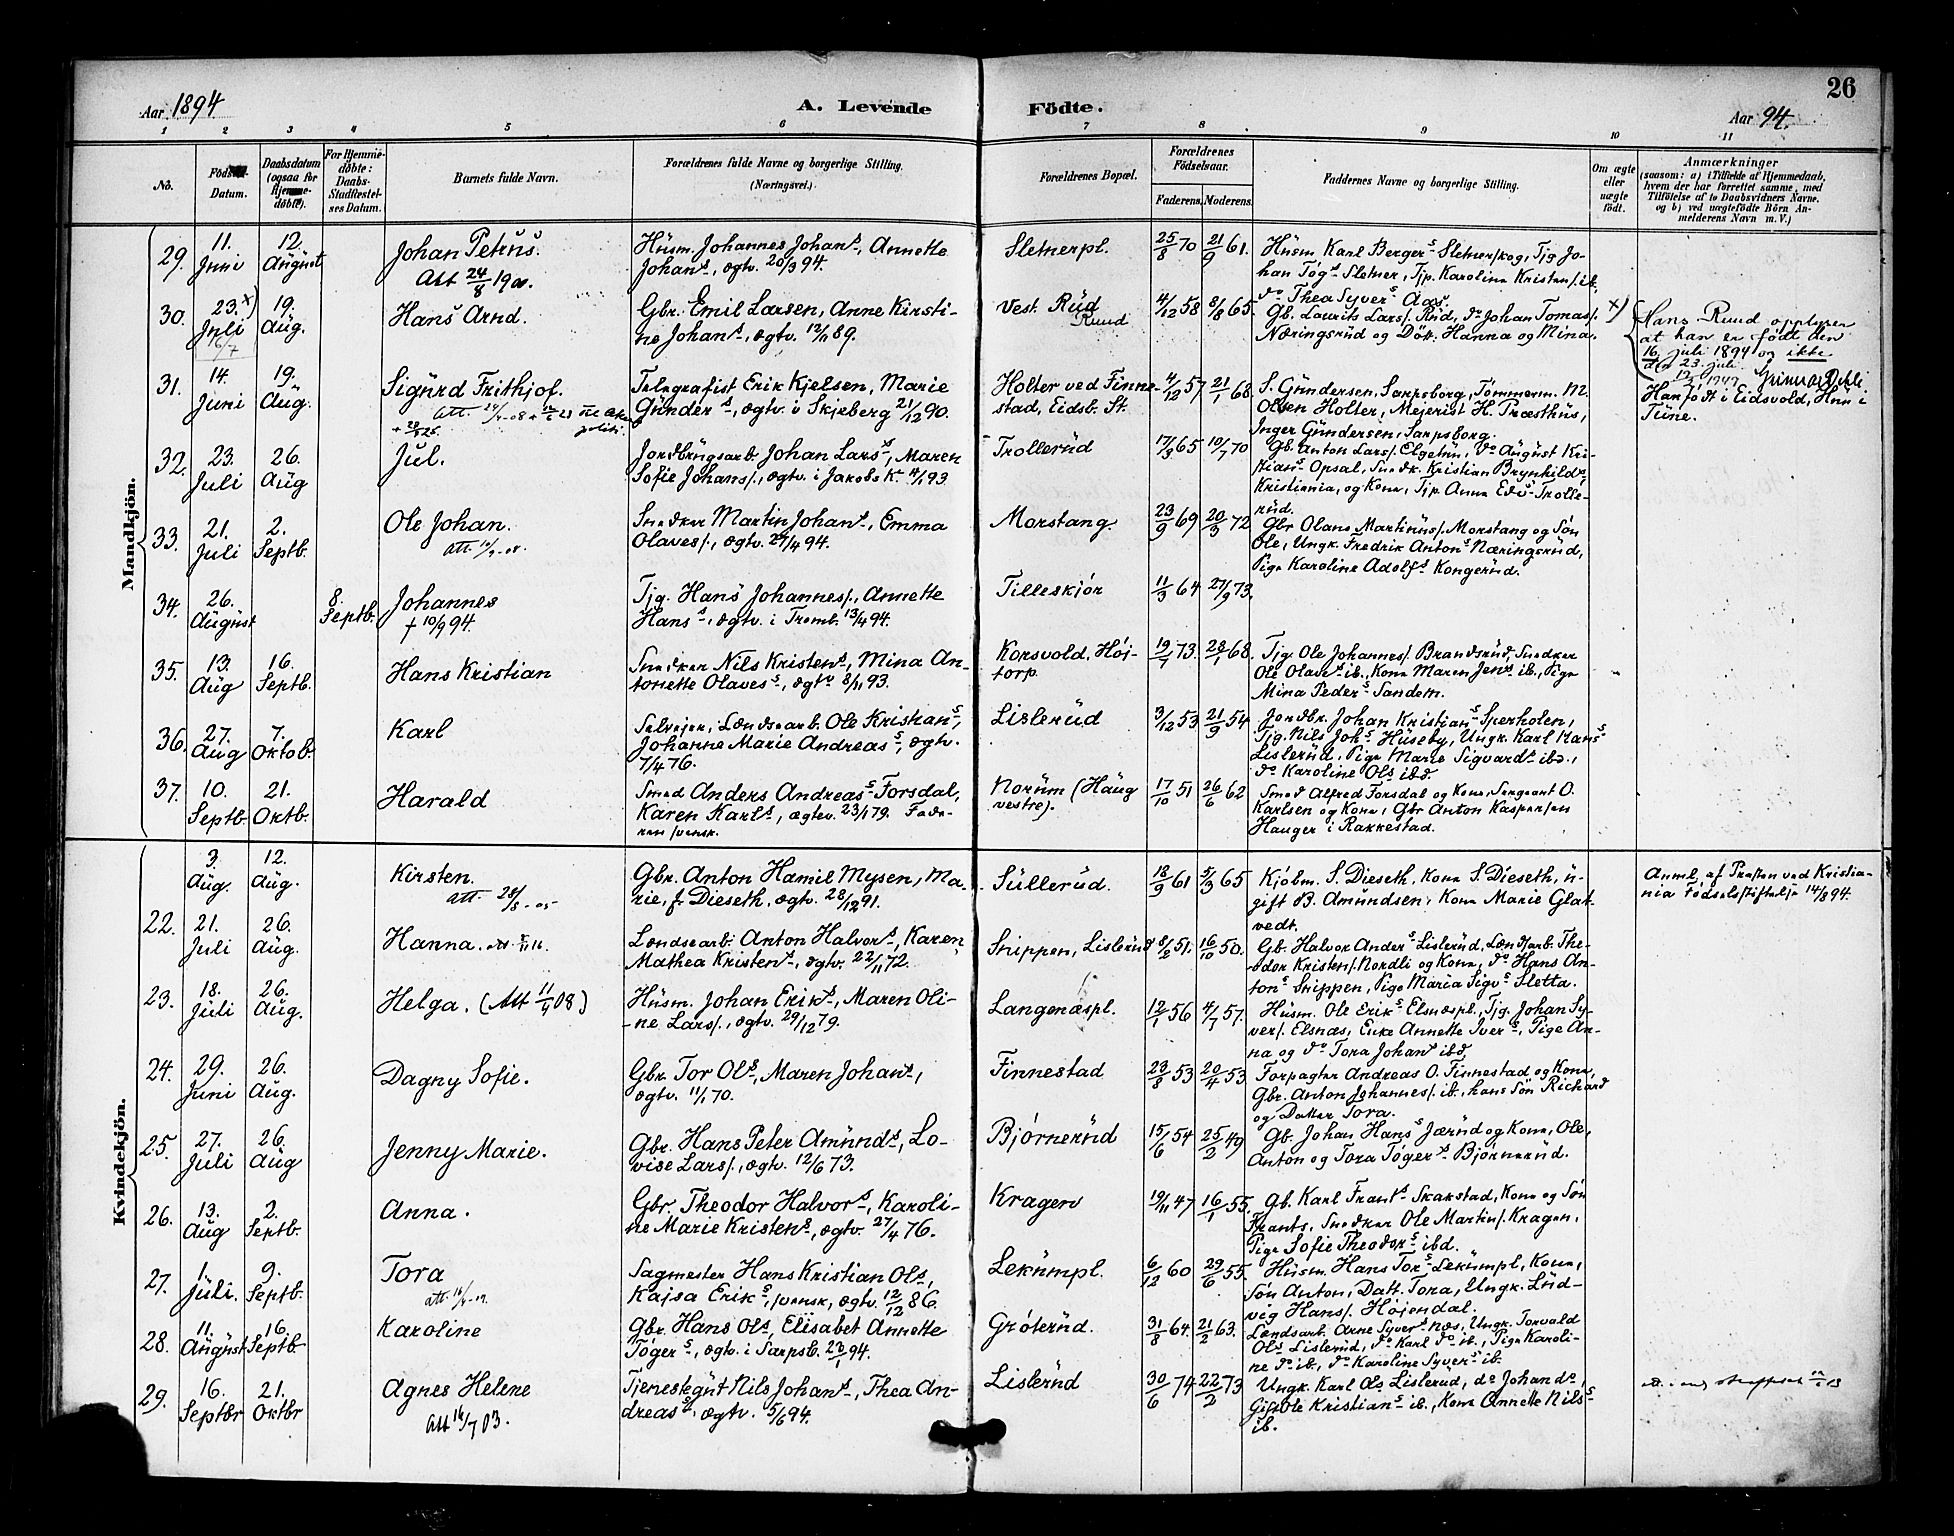 26
Aar 1894
A. Levende
Födte.
Aar 94.
1 2 3 4 5 6 7 8 9 10 11
No.
Födsels-
Datum.
Daabsdatum
(ogsaa for
Hjemme-
döbte).
For Hjemme-
döbte:
Daabs-
Stadfæstel-
ses Datum.
Barnets fulde Navn.
Forældrenes fulde Navne og borgerlige Stilling.
(Næringsvei.)
Forældrenes Bopæl.
Forældrenes
Födselsaar.
Faderens. Moderens.
Faddernes Navne og borgerlige Stilling.
Om ægte
eller
uægte
født.
Anmærkninger
(saasom: a) i Tilfælde af Hjemmedaab,
hvem der har forrettet samme, med
Tilföielse af to Daabsvidners Navne.
og b) ved uægtefödte Börn An-
melderens Navn m. V.)
Mandkjön.
29. 11. Juni
12. August
Johan Petrus.
Att 24/8 1900.
Husm. Johannes Johans., Annette
Johans., ægtv. 20/3 94.
Sletnerpl.
25/8 70 21/9 61.
Husm. Karl Bergers. Sletnerskog, Tjg Jo-
han Togs. Sletner, Tjp. Karoline Kristens. ib.
do Thea Syvers. Aas.
30. 23. x) Juli
16/7
19. Aug.
Hans Arnd.
Gbr. Emil Larsen, Anne Kirsti-
ne Johans., ægtv. 12/11 89.
Vest. Rud
Ruud
4/12 58 8/8 65.
Gb. Laurits Lars. Rud, do Johan Tomas.
Næringsrud og Døtt. Hanna og Mina.
x) Hans Ruud opplyser
at han er født den
16. juli 1894 og ikke
den 23. juli.
31. 14. Juni
19. Aug.
Sigurd Frithjof.
Telegrafist Erik Kjelsen, Marie
Gunders., ægtv. i Skjeberg 21/12 90.
Holter ved Finne-
stad, Eidsb. St.
4/12 57 21/1 68.
S. Gundersen, Sarpsborg, Tømmerm. M.
Olsen Holter, Mejerist H. Præsthus,
Inger Gundersen, Sarpsborg.
Han født i Eidsvold, Hun i
Tune.
32. 23. Juli
26. Aug
Jul.
Jordbrugsarb. Johan Lars., Maren
Sofie Johans., ægtv. i Jakobs K. 11/1 93
Trollerud
17/3 65 10/7 70
Gb. Anton Lars. Elgetun, do August Kri-
stians. Opsal, Snedk. Kristian Brynhilds.
Kristiania, og Kone, Tjp. Anna Edv.s Trolle-
rud.
33. 21. Juli
2. Septb.
Ole Johan.
Snedker Martin Johans., Emma
Olaves., ægtv. 27/4 94.
Morstang
23/9 69 20/3 72
Gbr Olans Martinus. Morstang og Søn
Ole, Ungk. Fredrik Antons. Næringsrud,
Pige Karoline Adolfs. Kongerud.
34. 26. August
8. Septb.
Johannes
† 10/9 94.
Tjg. Hans Johannes., Annette
Hans., ægtv. i Tromb. 13/4 94.
Tilleskjør
11/3 64 27/9 73.
35. 13. Aug
16. Septb.
Hans Kristian
Snedker Nils Kristens., Mina An-
tonette Olaves., ægtv 8/11 93.
Korsvold, Høj-
torp.
19/7 73. 28/1 68.
Tjg. Ole Johannes. Brandsrud, Snedker
Ole Olaves. ib., Kone Maren Jens. ib., Pige
Mina Peders. Sandem.
36. 27. Aug
7. Oktob.
Karl
Selvejer, Lændsearb. Ole Kristians.,
Johanne Marie Andreas., ægtv.
7/4 76.
Lislerud
3/12 53 21/9 54
Jordbr. Johan Kristjans. Sperholen,
Tjg. Nils Johs. Huseby, Ungk. Karl Hans.
Lislerud, Pige Marie Sigvards. ibd.,
do Karoline Ols. ibd.
37. 10. Septb.
21. Oktb.
Harald
Smed Anders Andreas. Forsdal,
Karen Karls., ægtev. 23/1 79. Fade-
ren svensk.
Norum (Haug
vestre).
17/10 51 26/6 62
Smed Alfred Forsdal og Kone, Sergeant O.
Karlsen og Kone, Gbr Anton Kaspersen
Hauger i Rakkestad.
Kvindekjön.
3. Aug.
12. Aug.
Kirsten.
Gbr. Anton Hamil Mysen, Ma-
rie, f. Dieseth, ægtv. 28/12 91.
Sullerud.
18/9 61 5/3 65
Kjøbm. S. Dieseth, Kone S. Dieseth, u-
gift B. Amundsen, Kone Marie Glat-
vedt.
Anml. af Præsten ved Kristia-
nia Fødselsstiftelse 14/8 94.
22. 21. Juli
26. Aug.
Hanna.
Lændsearb. Anton Halvors., Karen
Mathea Kristens., ægtv. 22/11 72.
Snippen, Lislerud
8/2 51. 16/10 50.
Gb. Halvor Anders. Lislerud, Lændsarb. The-
odor Kristens. Nordli og Kone, do Hans An-
tons. Snippen, Pige Maria Sigvs. Sletta.
23. 18. Juli
26. Aug.
Helga. (Att 11/4 08)
Husm. Johan Eriks., Maren Oli-
ne Lars., ægtv. 29/12 79.
Langenæspl.
12/1 56 4/7 57.
Husm. Ole Eriks. Elsnæspl., Tjg. Johan Sy-
vers. Elsnæs, Enke Annette Ivers., Pige An-
na og do Tora Johans. ibd.
24. 29. Juni
26. Aug.
Dagny Sofie.
Gbr. Tor Ols., Maren Johans.,
ægtv. 11/1 70.
Finnestad
23/8 53 20/4 53
Forpagter Andreas O. Finnestad og Kone,
Gbr. Anton Johannes. ib., hans Søn Richard
og Datter Tora.
25. 27. Juli
26. Aug
Jenny Marie.
Gbr. Hans Peter Amunds., Lo-
vise Lars., ægtv. 12/6 73.
Bjørnerud
15/6 54 25/2 49
Gb. Johan Hans. Jærud og Kone, Ole,
Anton og Tora Tøgers. Bjørnerud.
26. 13. Aug
2. Septb.
Anna.
Gbr. Theodor Halvors., Karoli-
ne Marie Kristens., ægtv. 27/4 76.
Kragero
19/11 47 16/1 55.
Gb. Karl Frants. Skakstad, Kone og Søn
Frants, Snedker Ole Martins. Kragen,
Pige Sofie Theodors. ibd.
27. 1. Juli.
9. Septb.
Tora
Sagmester Hans Kristian Ols.,
Kajsa Eriks., svensk, ægtv. 12/12 86.
Lekumpl.
6/12 60 29/6 55.
Husm. Hans Tors. Lekumpl, Kone,
Søn Anton, Datt. Tora, Ungk. Lud-
vig Hans. Højendal.
28. 11. August
16. Septb
Karoline
Gbr. Hans Ols., Elisabet Annette
Tøgers., ægtv. i Sarpsb. 23/1 94.
Grøterud.
31/8 64. 21/2 63.
Lændsarb. Arne Syvers. Næs, Ungk. Torvald
Ols. Lislerud, do Karl do ib., Pige Karoli-
ne do ib., do Karoline Syvers. ib.
29. 16. Septbr
21. Oktbr
Agnes Helene
Att 16/7 03.
Tjenestegut Nils Johans., Thea An-
dreas., ægtv. 5/6 94.
Lislerud
30/6 74 22/2 73
Ungk. Karl Ols. Lislerud, do Johan do,
Gift Ole Kristians. ib., Kone Annette Nils.
ib.